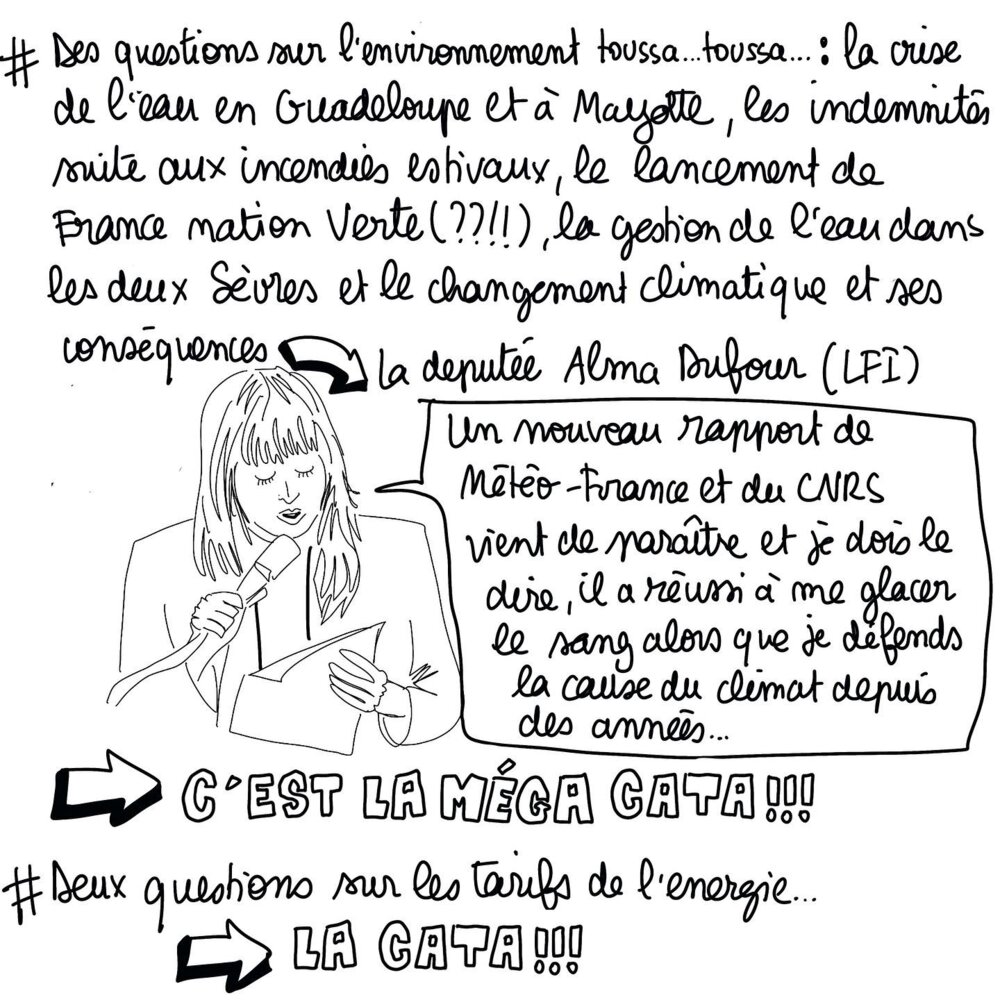 # Des questions sur l'environnement toussa...toussa... : la crise
de l'eau en Guadeloupe et à Mayotte, les indemnités
suite aux incendies estivaux, le lancement de
France nation Verte (??!!), la gestion de l'eau dans
les deux Sèvres et le changement climatique et ses
conséquences
La deputée Alma Dufour (LFI)
Un nouveau rapport de
Météo-France et du CNRS
vient de paraître et je dois le
dire, il a réussi à me glacer
le sang alors que je défends
la cause du climat depuis
des années...
C'EST LA MÉGA CATA!!!
# Deux questions sur les tarifs de l'energie...
LA CATA!!!